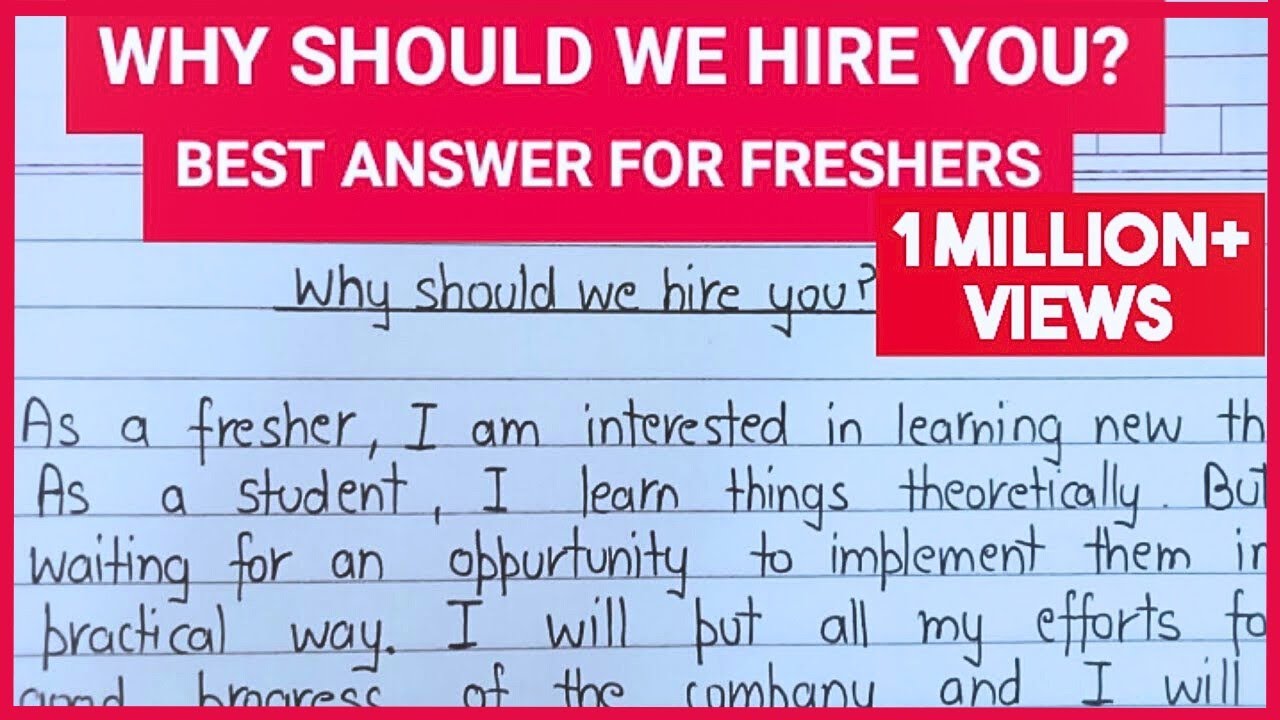 WHY SHOULD WE HIRE YOU?
BEST ANSWER FOR FRESHERS
1 MILLION+
VIEWS
Why should we hire you?
As a fresher, I am interested in learning new th
As a student, I learn things theoretically. But
waiting for an oppurtunity to implement them in
practical way. I will put all my efforts fo
good progress of the company and I will